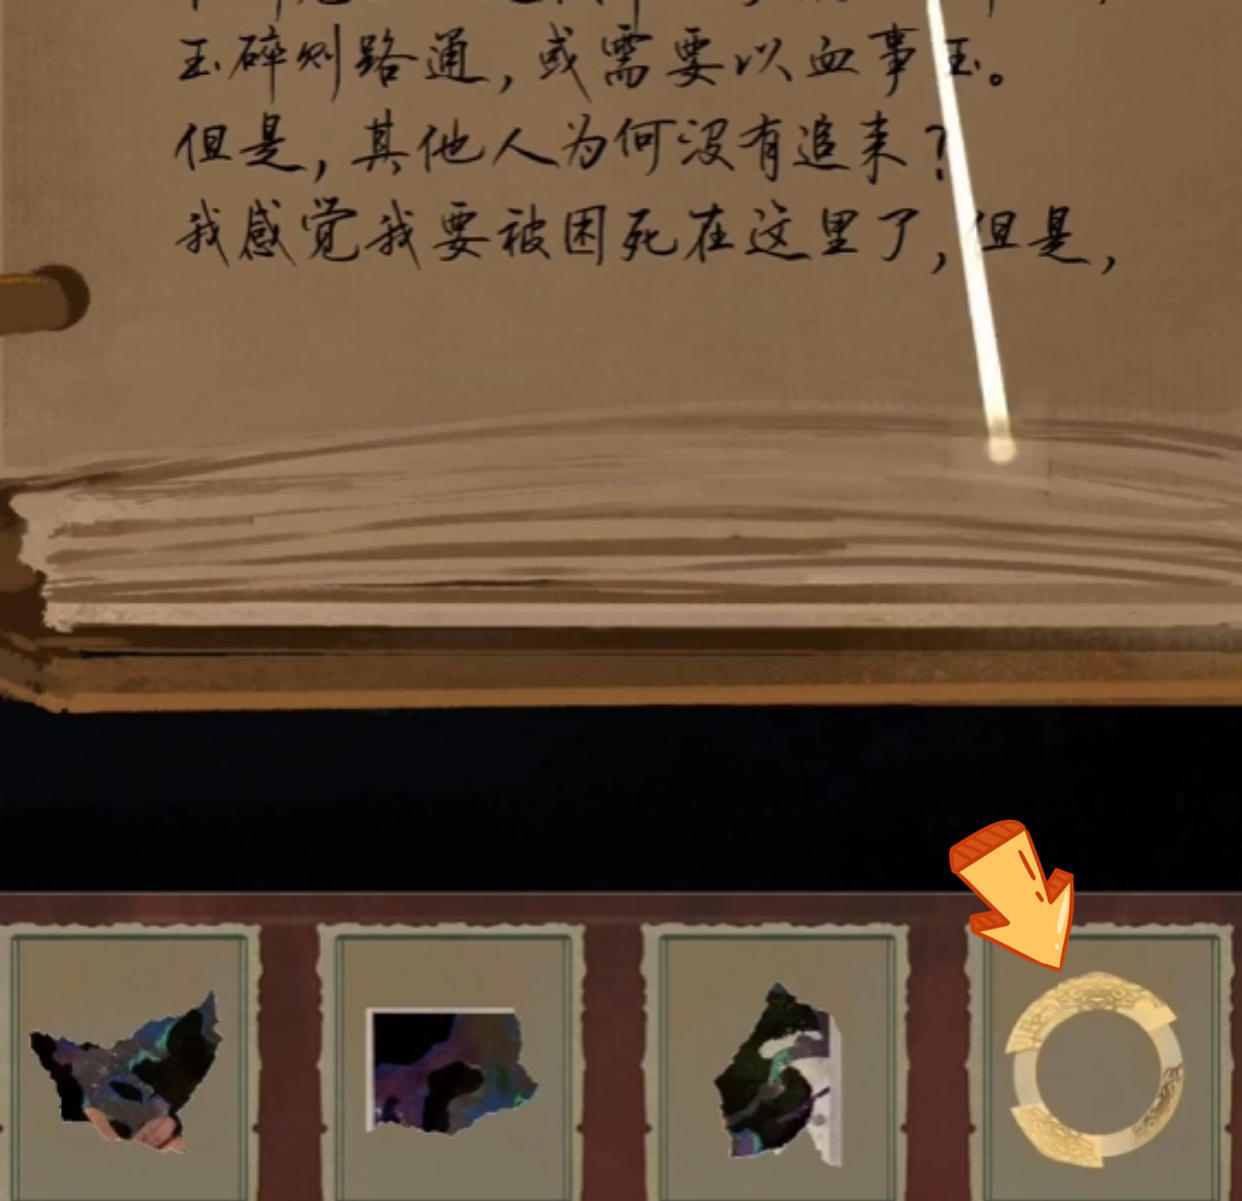 玉碎则路通，或需要以血事玉。
但是，其他人为何没有追来？
我感觉我要被困死在这里了，但是，